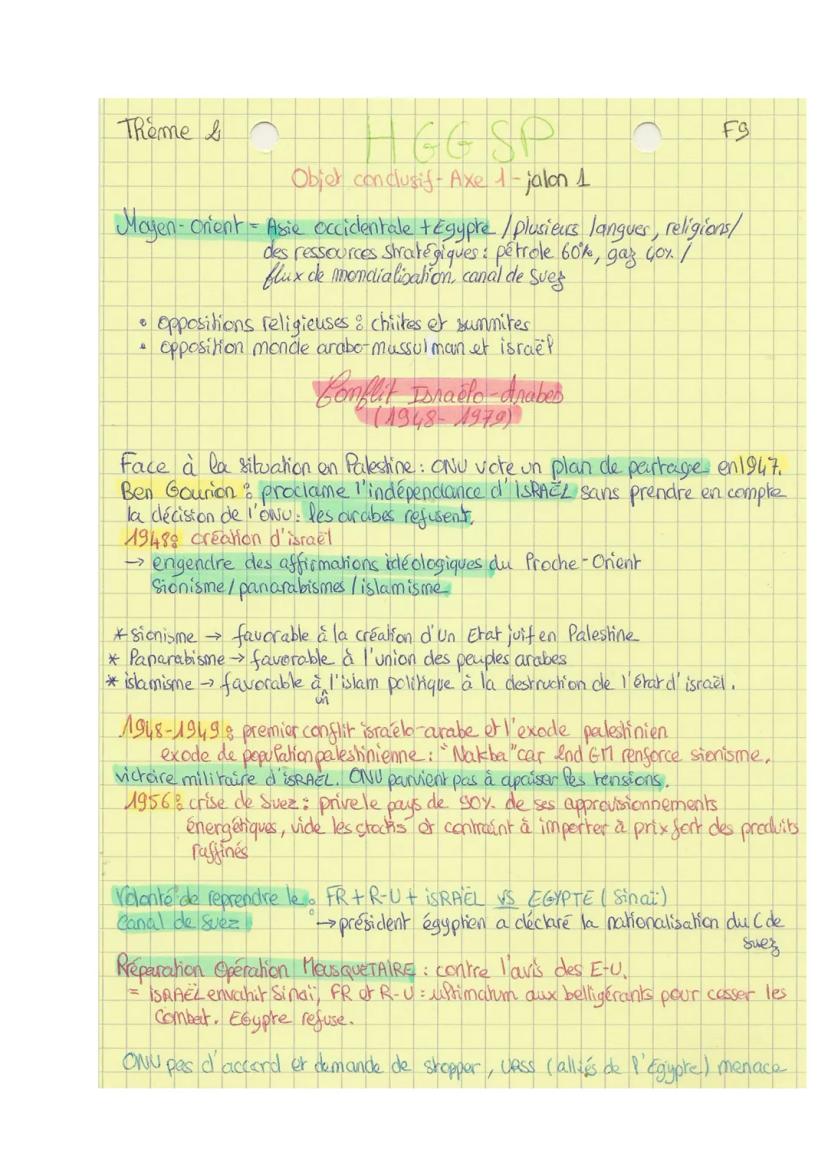 Thème 2
HGGSP
F9
Objet conclusif - Axe 1 - jalon 1
Moyen-Orient = Asie occidentale + Egypte / plusieurs langues, religions/
des ressources stratégiques : pétrole 60%, gaz 40% /
flux de mondialisation, canal de Suez
• oppositions religieuses : chiites et sunnites
• opposition monde arabo-mussulman et israël
Conflit Israëlo-Arabes
(1948-1979)
Face à la situation en Palestine : ONU vote un plan de partage en 1947.
Ben Gourion : proclame l'indépendance d'ISRAËL sans prendre en compte
la décision de l'ONU : les arabes refusent.
1948 : création d'israël
→ engendre des affirmations idéologiques du Proche-Orient
Sionisme / panarabismes / islamisme
* Sionisme → favorable à la création d'un Etat juif en Palestine
* Panarabisme → favorable à l'union des peuples arabes
* islamisme → favorable à un l'islam politique à la destruction de l'état d'israël.
1948-1949 : premier conflit israëlo-arabe et l'exode palestinien
exode de population palestinienne : "Nakba" car 2nd GM renforce sionisme.
victoire militaire d'ISRAËL. ONU parvient pas à apaiser les tensions.
1956 : crise de Suez : prive le pays de 90% de ses approvisionnements
énergétiques, vide les stocks et contraint à importer à prix fort des produits
raffinés
Volonté de reprendre le : FR + R-U + iSRAËL VS EGYPTE (Sinaï)
Canal de Suez → président égyptien a déclaré la nationalisation du C de
Suez
Préparation Opération MOUSQUETAIRE : contre l'avis des E-U.
= iSRAËL envahit Sinaï, FR et R-U : ultimatum aux belligérants pour cesser les
combat. Egypte refuse.
ONU pas d'accord et demande de stopper, URSS (alliés de l'Egypte) menace